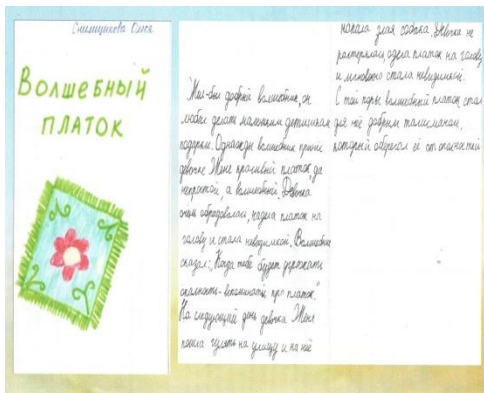 Снимщикова Олеся
Волшебный
платок
Жил-был добрый волшебник, он
любил делать маленьким детишкам
подарки. Однажды волшебник принёс
девочке Жене красивый платок, да
непростой, а волшебный. Девочка
очень обрадовалась, надела платок на
голову и стала невидимкой. Волшебник
сказал: „Когда тебе будет угрожать
опасность - вспоминай про платок."
На следующий день девочка Женя
пошла гулять на улицу и на неё
напала злая собака. Девочка не
растерялась одела платок на голову
и мгновенно стала невидимкой.
С тех пор волшебный платок стал
для неё добрым талисманом,
который оберегал её от опасностей